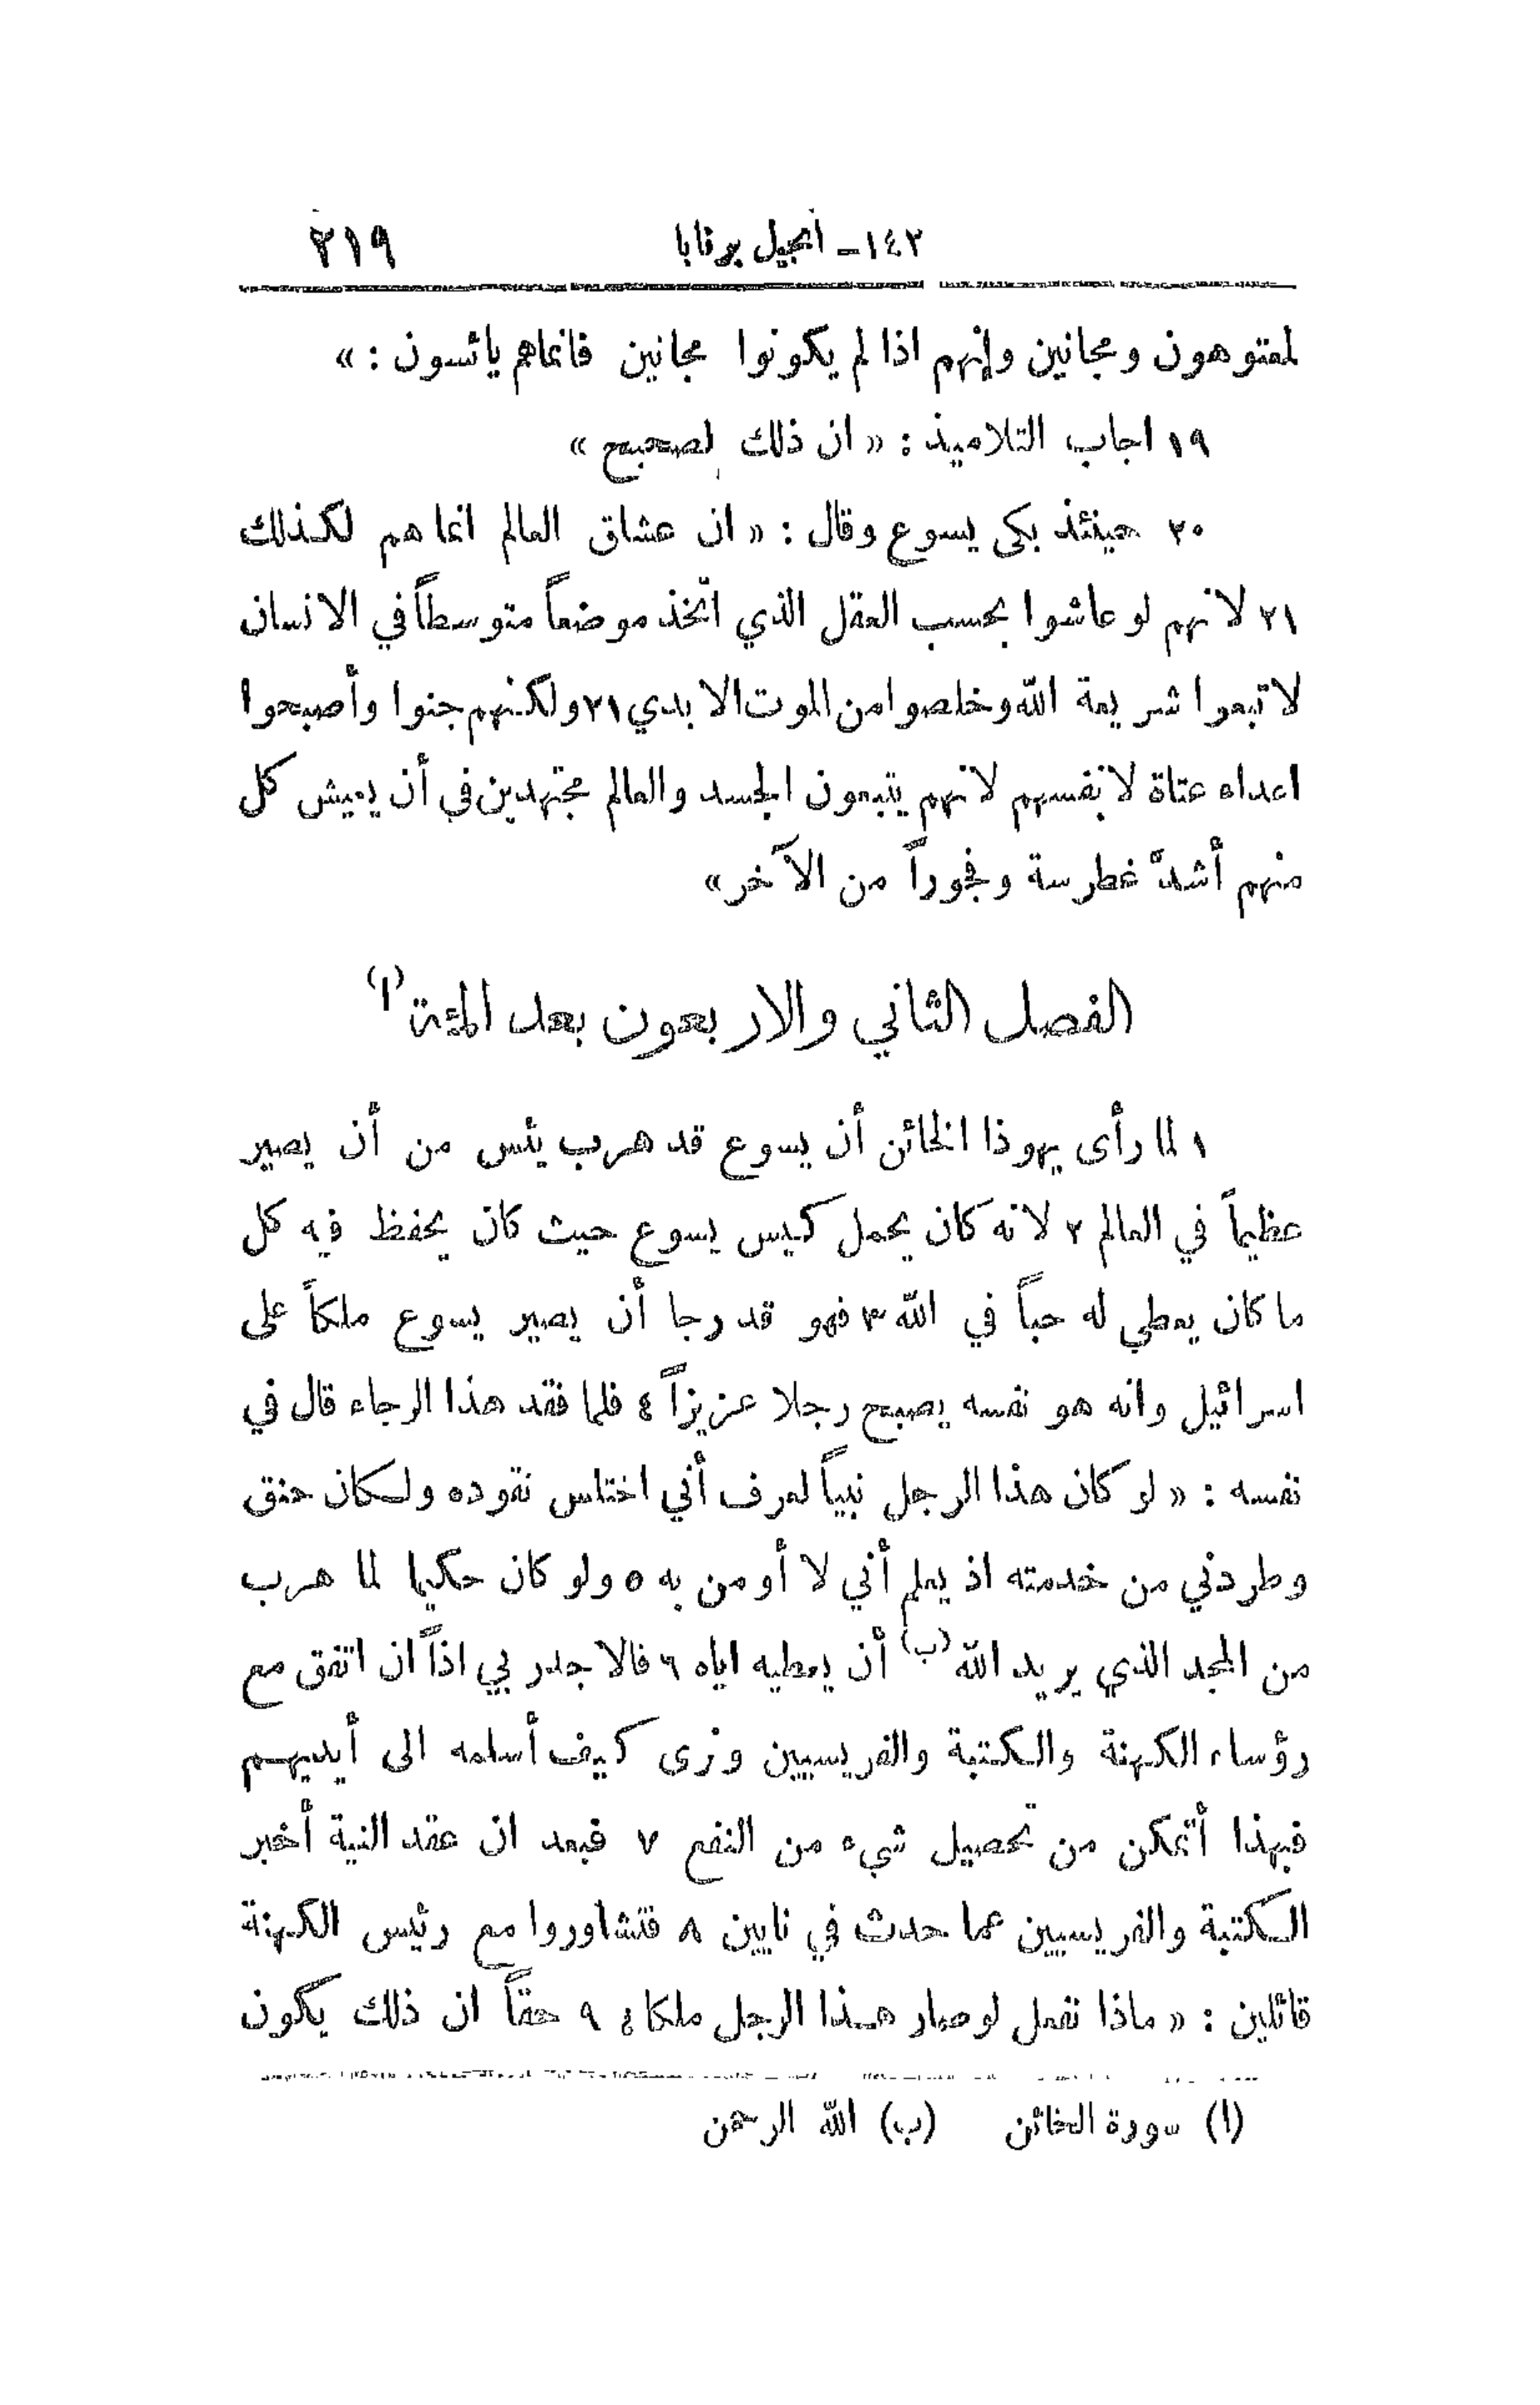 ١٤٢ــ انجيل برنابا ٢١٩
لمعتوهون ومجانين وإنهم اذا لم يكونوا مجانين فانماهم يائسون : »
١٩ اجاب التلاميذ : « ان ذلك لصحيح »
٢٠ حينئذ بكى يسوع وقال : « ان عشاق العالم انما هم لكذلك
٢١ لانهم لو عاشوا بحسب العقل الذي اتّخذ موضعاً متوسطاً في الانسان
لاتبعوا شريعة الله وخلصوا من الموت الابدي ٢١ ولكنهم جنوا وأصبحوا
اعداء عتاة لانفسهم لانهم يتبعون الجسد والعالم مجتهدين في أن يعيش كل
منهم أشدّ غطرسة وفجوراً من الآخر »
الفصل الثاني والاربعون بعد المئة (١)
١ لما رأى يهوذا الخائن أن يسوع قد هرب يئس من أن يصير
عظيماً في العالم ٢ لانه كان يحمل كيس يسوع حيث كان يحفظ فيه كل
ما كان يعطي له حباً في الله ٣ فهو قد رجا أن يصير يسوع ملكاً على
اسرائيل وانه هو نفسه يصبح رجلا عزيزاً ٤ فلما فقد هذا الرجاء قال في
نفسه : « لو كان هذا الرجل نبياً لعرف أني اختلس نقوده ولكان حنق
وطردني من خدمته اذ يعلم أني لا أومن به ٥ ولو كان حكيما لما هرب
من المجد الذي يريد الله (ب) أن يعطيه اياه ٦ فالاجدر بي اذاً ان اتفق مع
رؤساء الكهنة والكتبة والفريسيين ونرى كيف أسلمه الى أيديهم
فبهذا أتمكن من تحصيل شيء من النفع ٧ فبعد ان عقد النية أخبر
الكتبة والفريسيين عما حدث في نايين ٨ فتشاوروا مع رئيس الكهنة
قائلين : « ماذا نفعل لو صار هذا الرجل ملكا؟ ٩ حقاً ان ذلك يكون
(١) سورة الخائن (ب) الله الرحمن